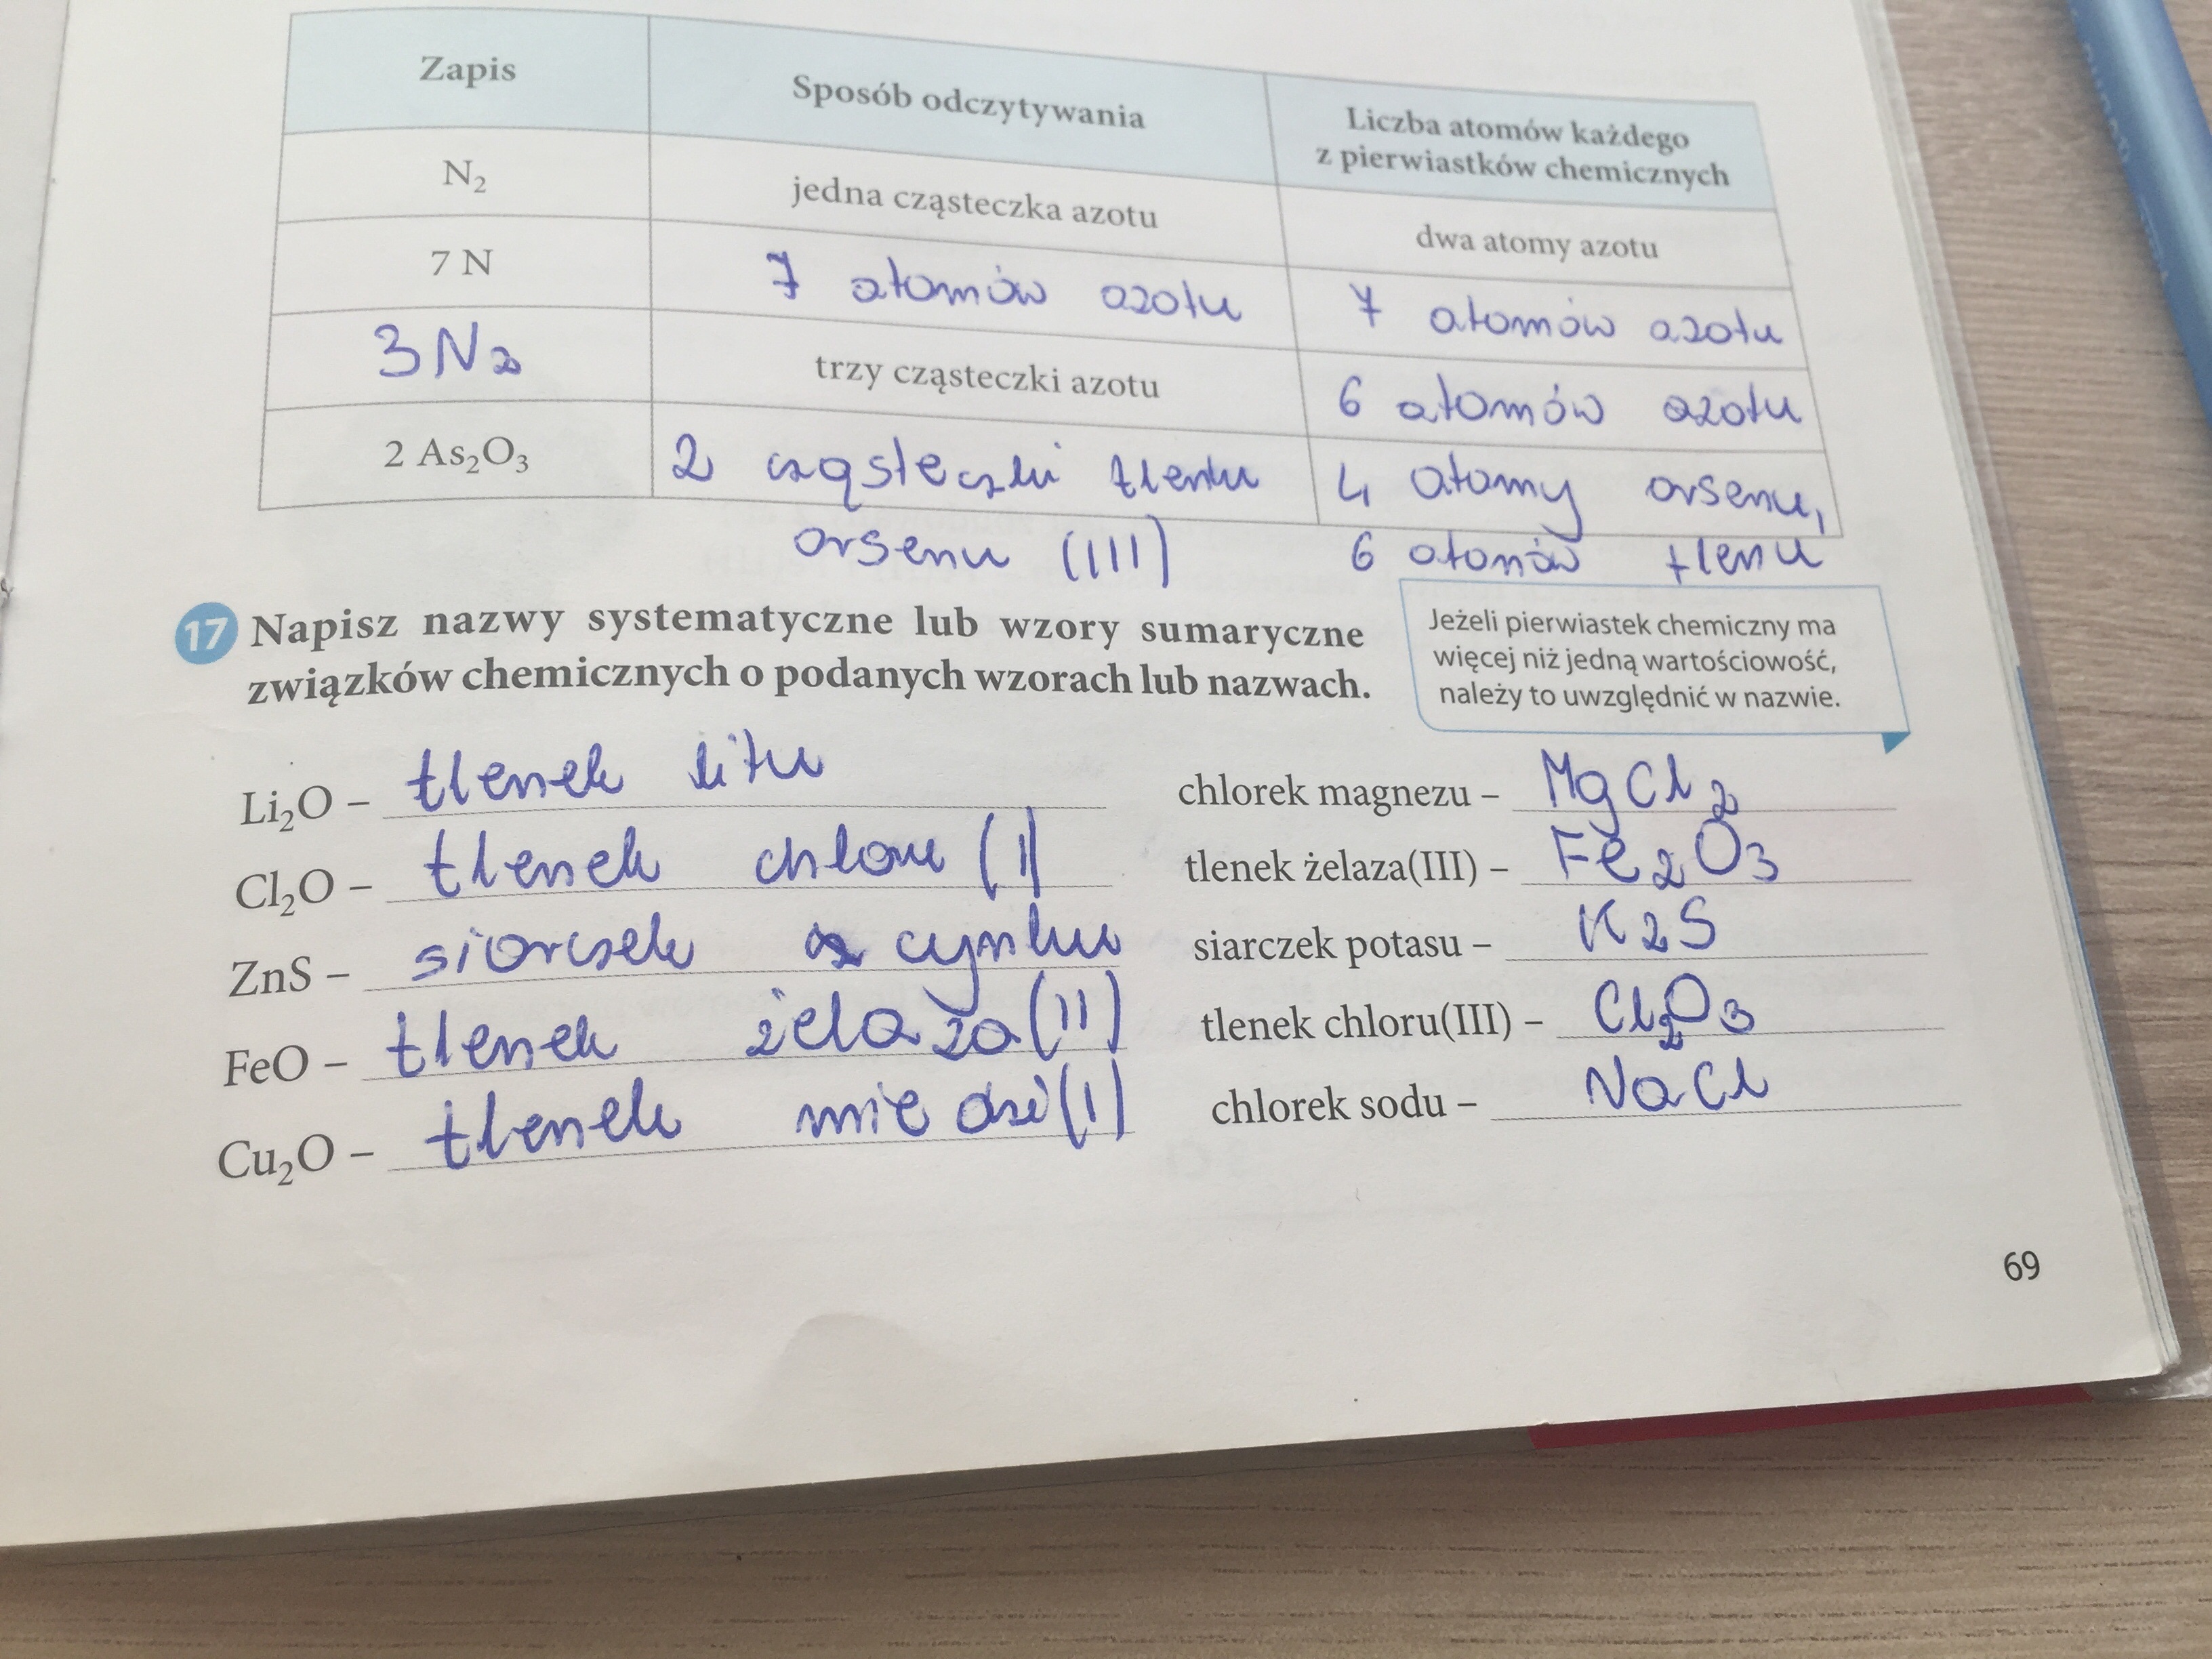 Zapis Sposób odczytywania Liczba atomów każdego
z pierwiastków chemicznych
N₂ jedna cząsteczka azotu dwa atomy azotu
7 N 7 atomów azotu 7 atomów azotu
3N₂ trzy cząsteczki azotu 6 atomów azotu
2 As₂O₃ 2 cząsteczki tlenku 4 atomy arsenu,
arsenu (III) 6 atomów tlenu
17 Napisz nazwy systematyczne lub wzory sumaryczne
związków chemicznych o podanych wzorach lub nazwach.
Jeżeli pierwiastek chemiczny ma
więcej niż jedną wartościowość,
należy to uwzględnić w nazwie.
Li₂O – tlenek litu
Cl₂O – tlenek chloru (I)
ZnS – siarczek cynku
FeO – tlenek żelaza (II)
Cu₂O – tlenek miedzi (I)
chlorek magnezu – MgCl₂
tlenek żelaza(III) – Fe₂O₃
siarczek potasu – K₂S
tlenek chloru(III) – Cl₂O₃
chlorek sodu – NaCl
69